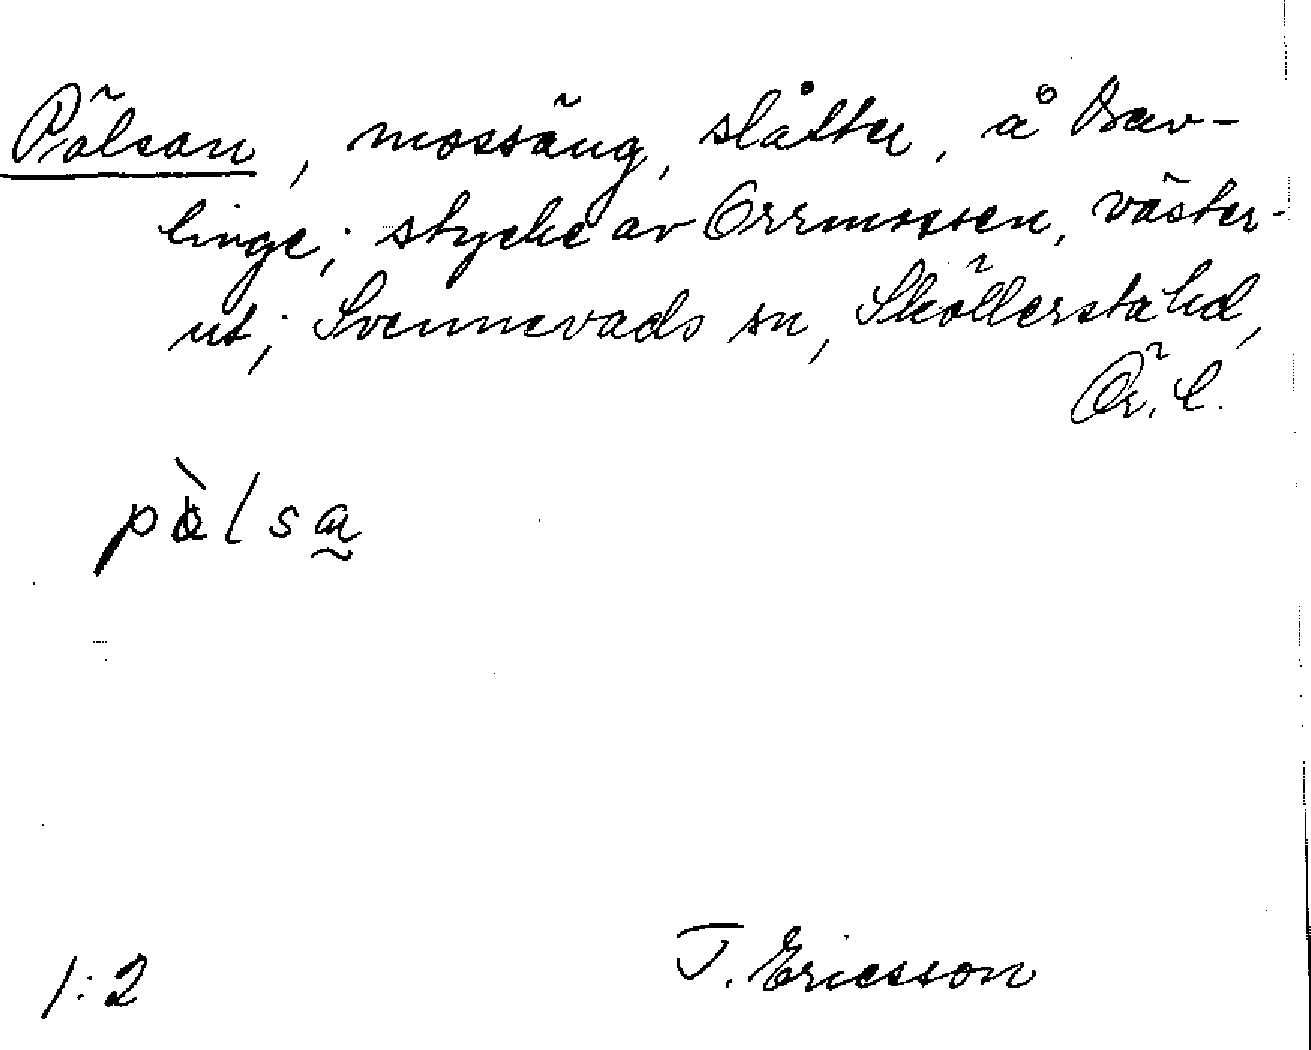 Pälsan, mossäng, slåtter, å Bav-
linge; stycke av Orrmossen, väster-
ut; Svennevads sn, Sköllersta hd,
Ör. l.
pàlsa
1:2
T. Ericsson